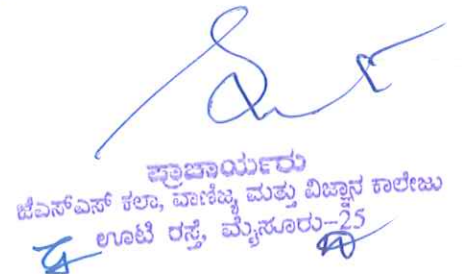 ಪ್ರಾಚಾರ್ಯರು
ಜೆಎಸ್ಎಸ್ ಕಲಾ, ವಾಣಿಜ್ಯ ಮತ್ತು ವಿಜ್ಞಾನ ಕಾಲೇಜು
ಊಟಿ ರಸ್ತೆ, ಮೈಸೂರು-25